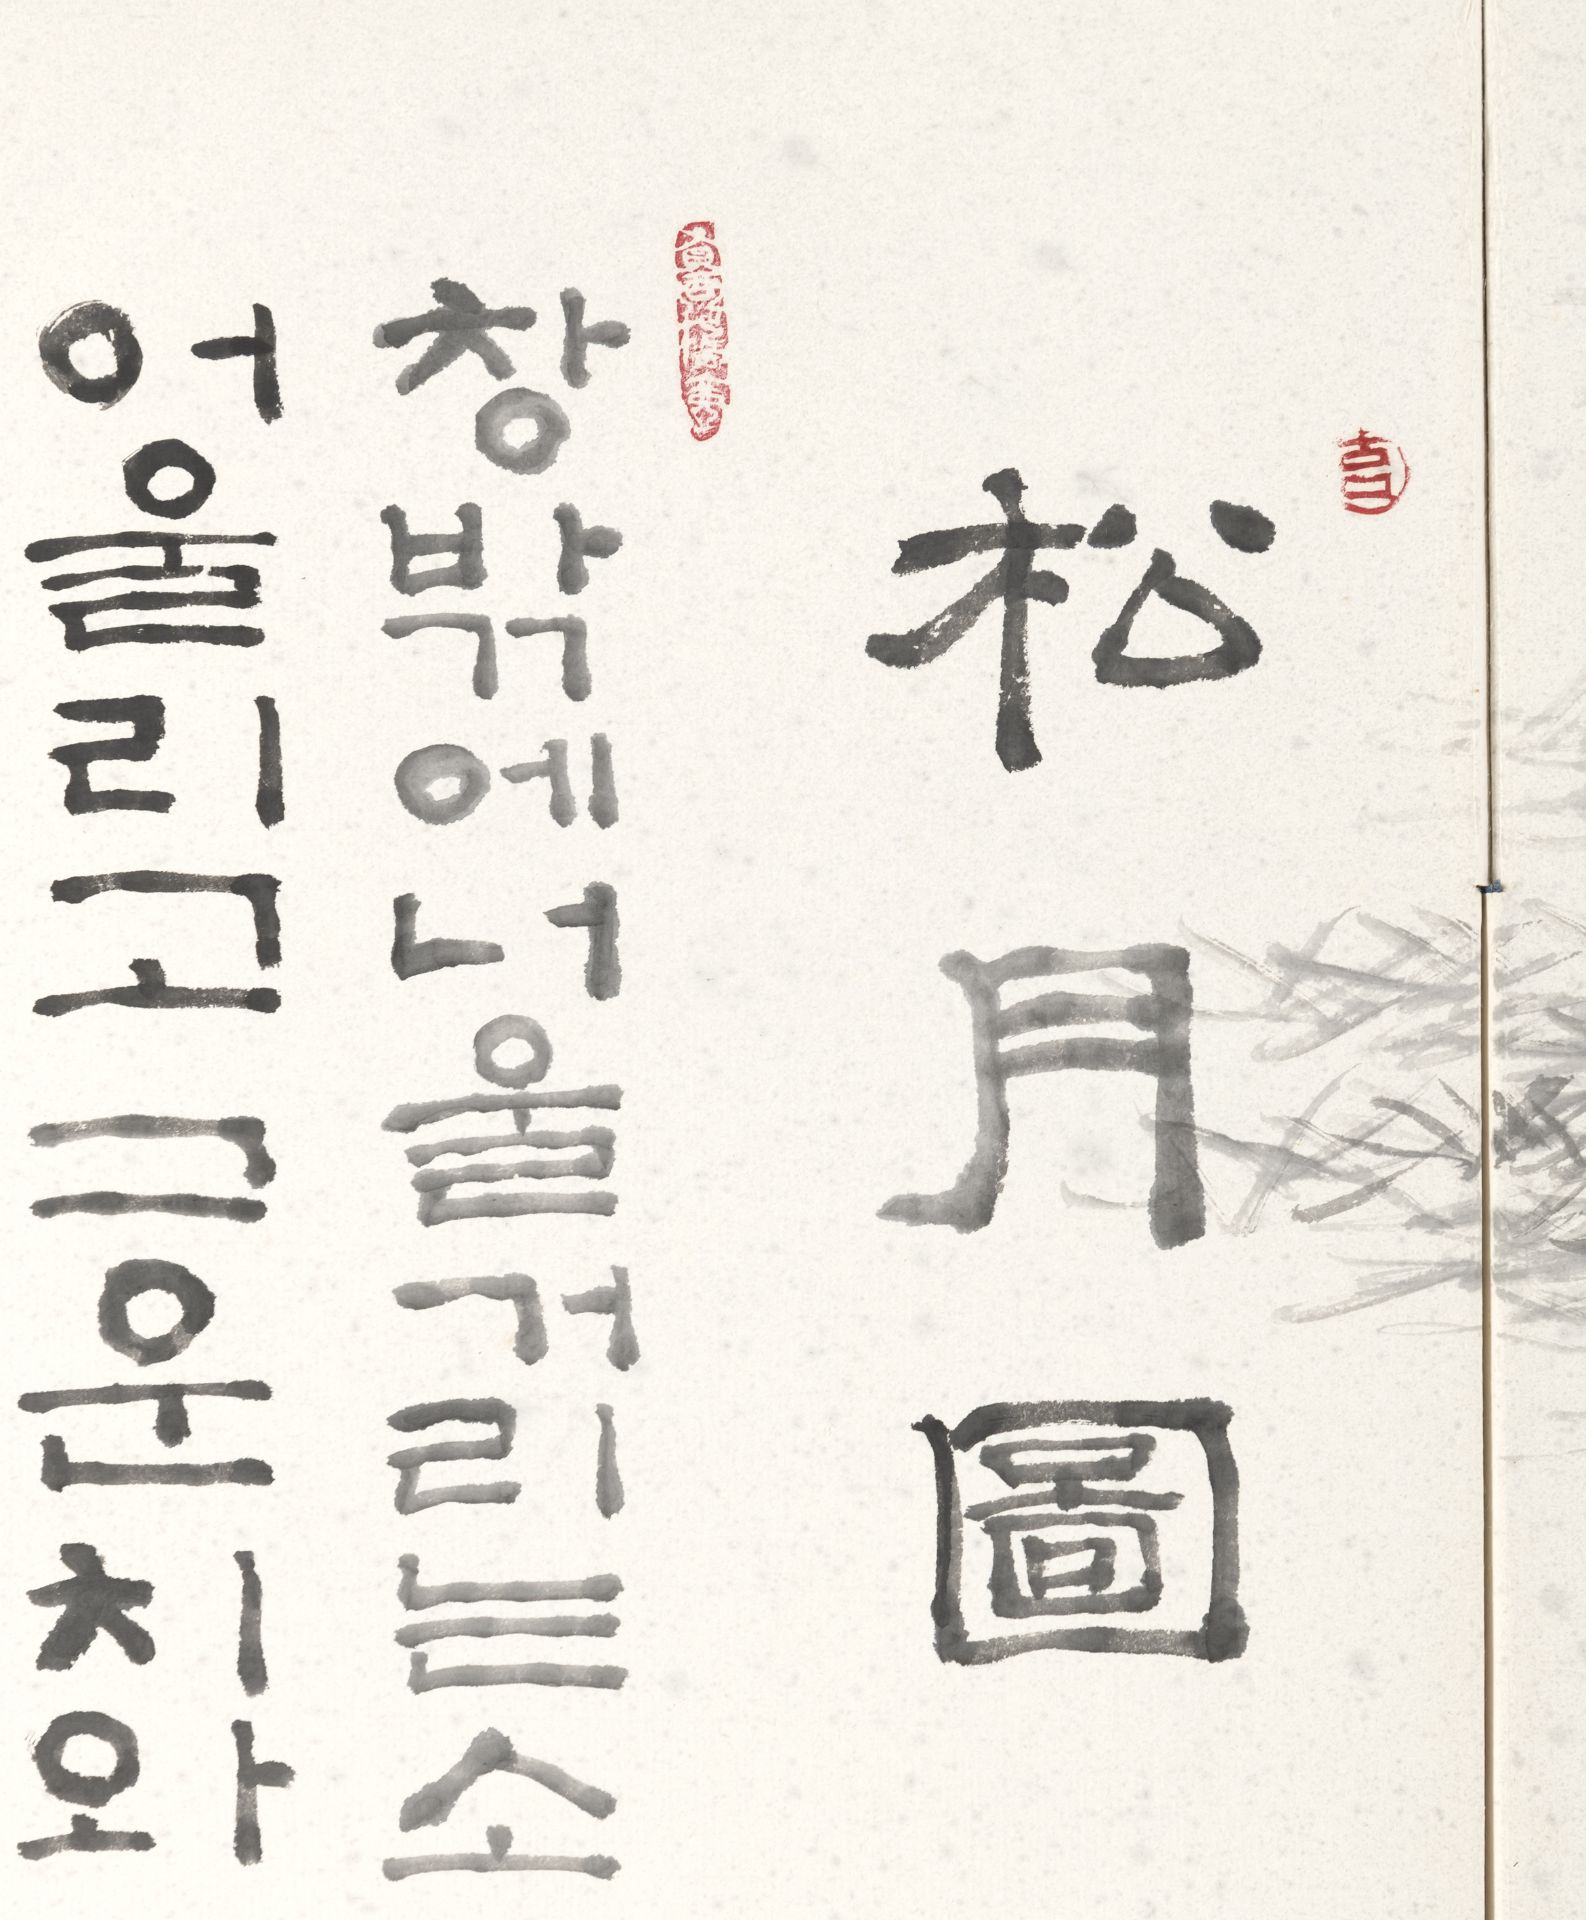 松月圖
창밖에너울거리는소
어울리고그운치와